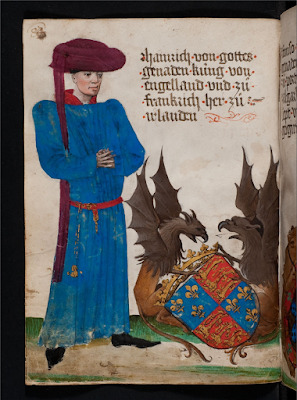 hainrich · von · gottes ·
genaden · küng · von ·
engelland · vnd · zü
frankrich · her · zü ·
irlanden